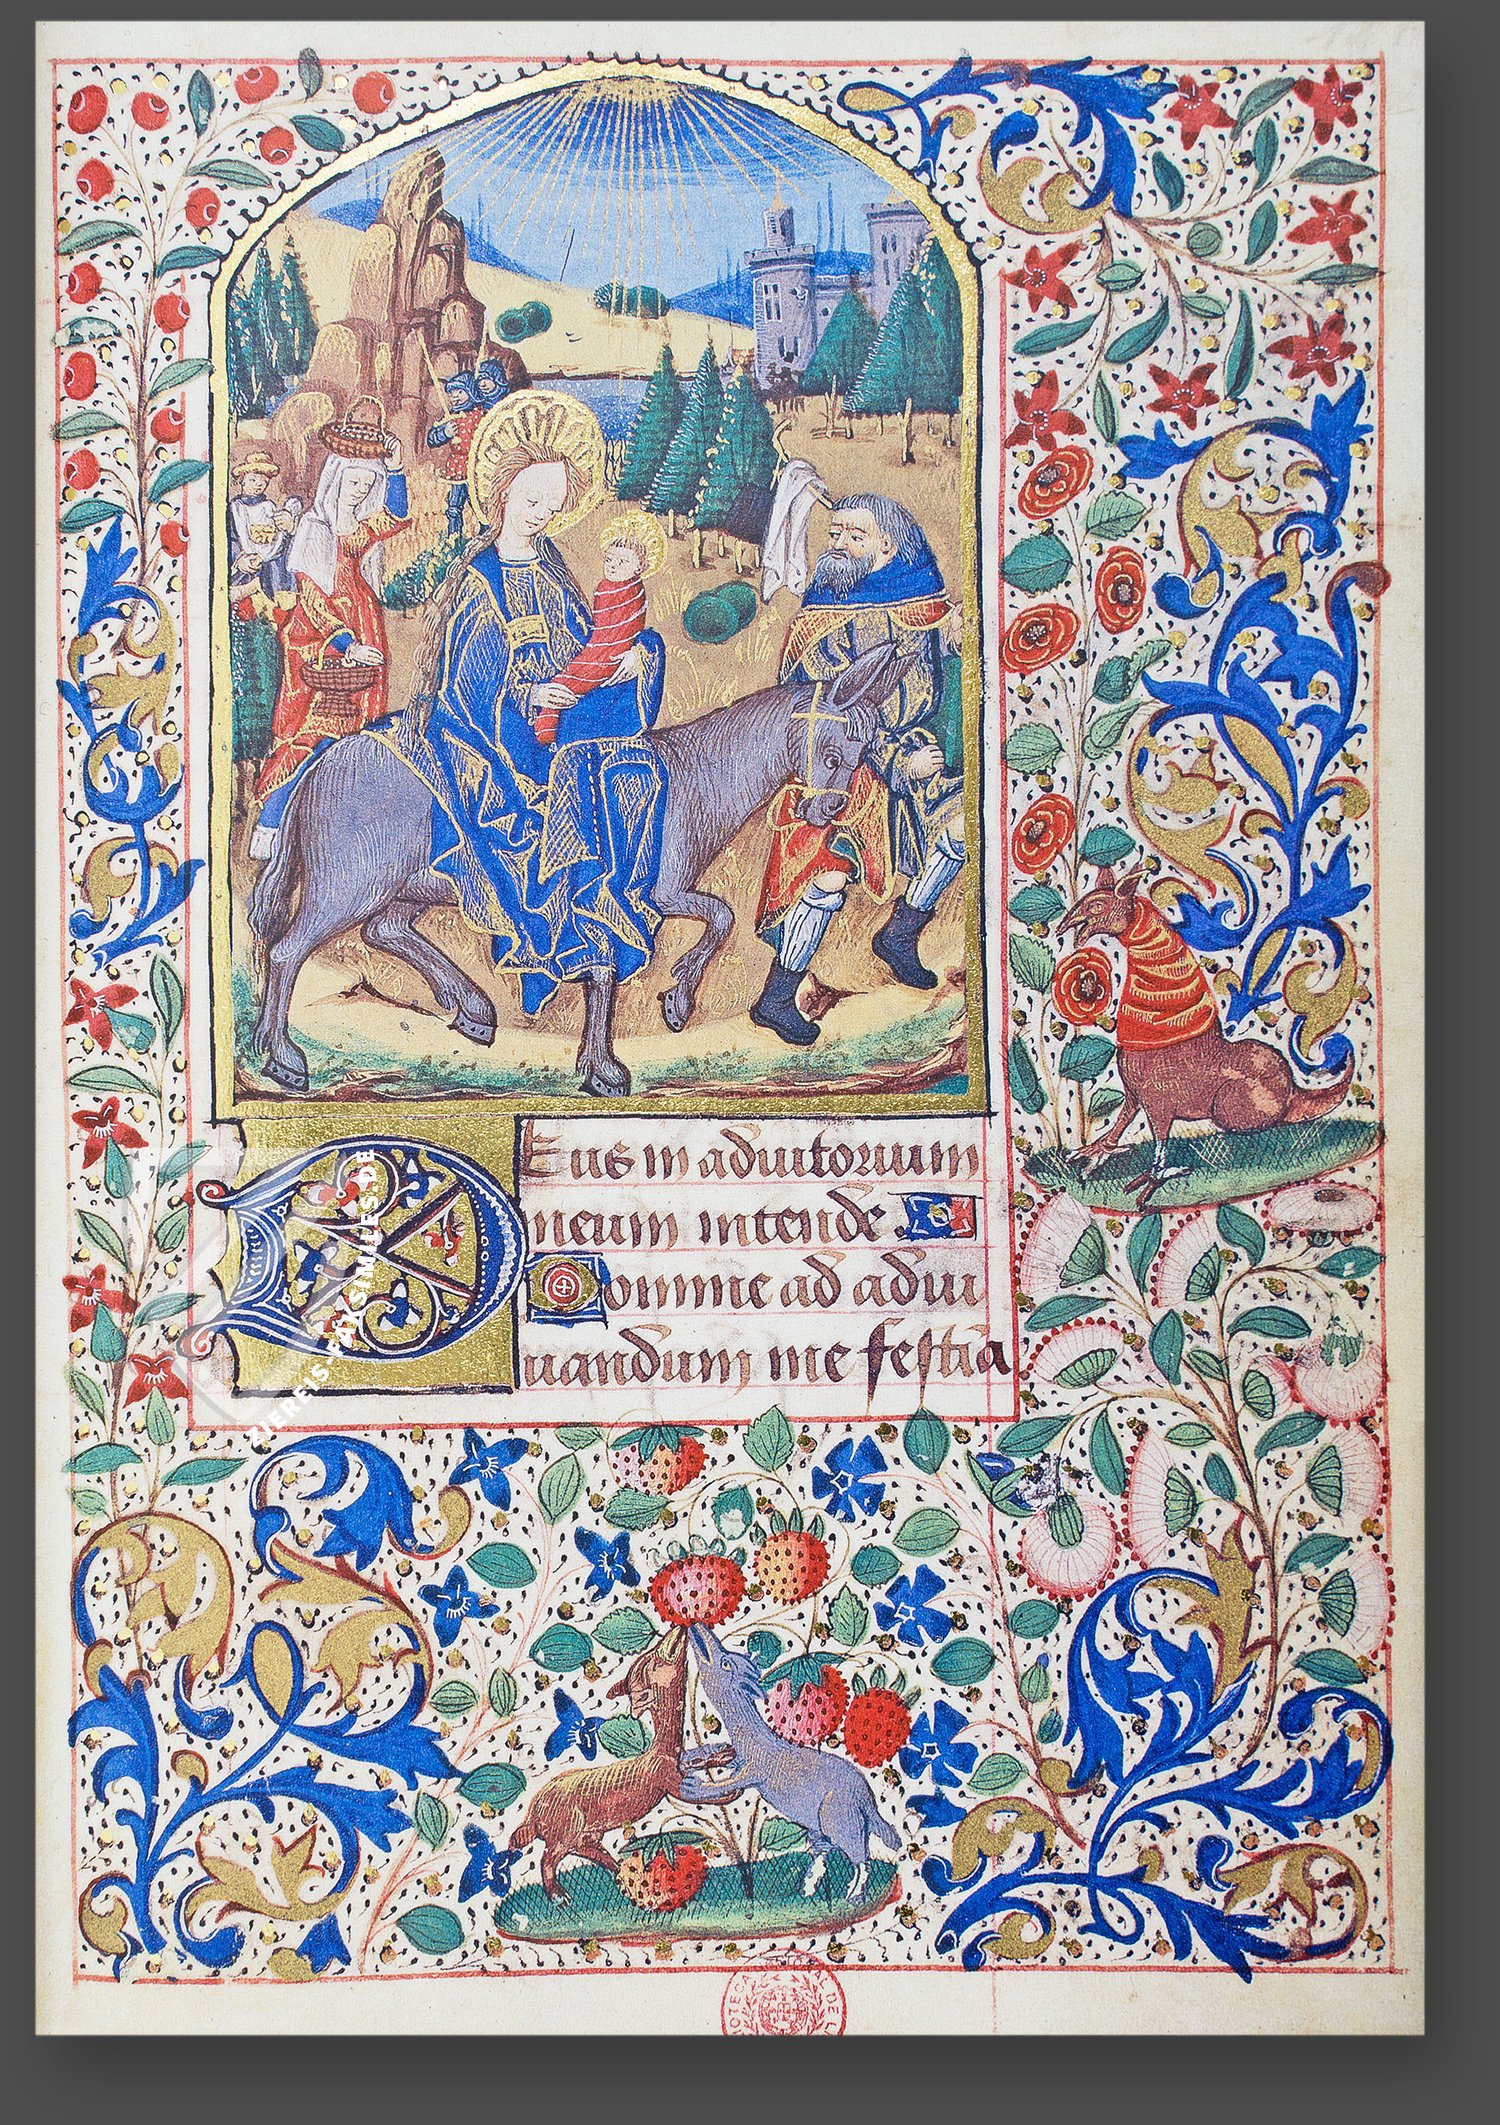 Deus in adiutorium
meum intende
Domine ad adiu
uandum me festina
ZIEREIS-FAKSIMILES.DE